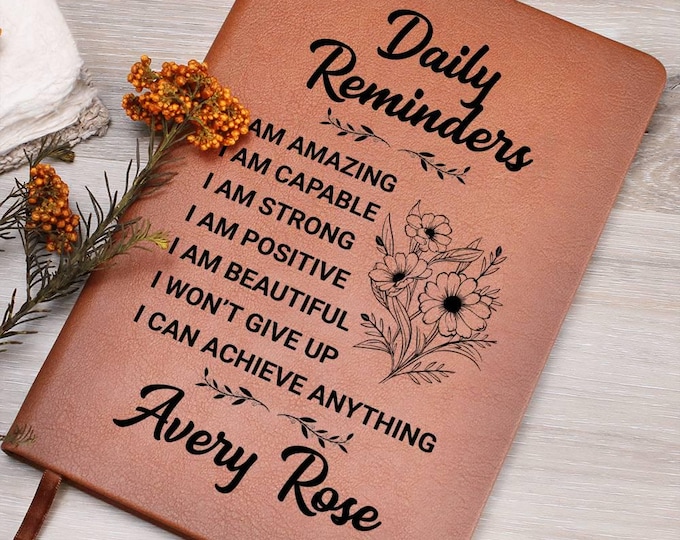 Daily
Reminders
AM AMAZING
I AM CAPABLE
I AM STRONG
I AM POSITIVE
I AM BEAUTIFUL
I WON'T GIVE UP
I CAN ACHIEVE ANYTHING
Avery Rose